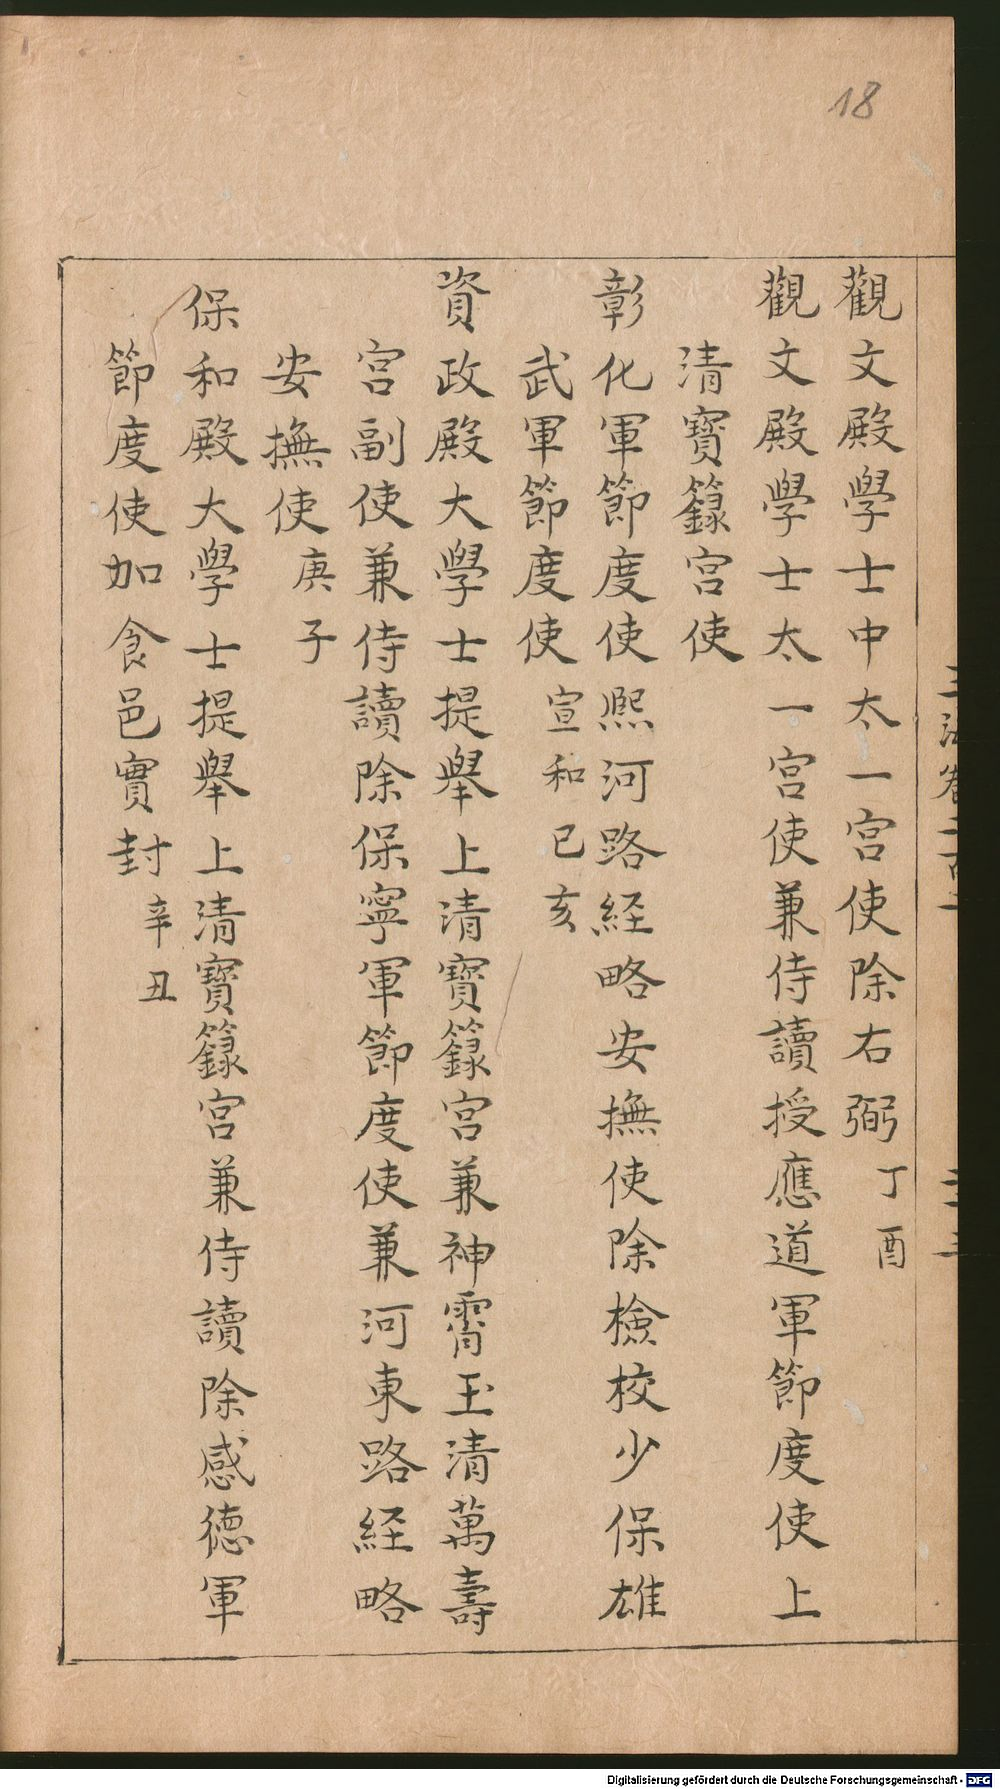 18
觀文殿學士中太一宮使除右弼丁酉
觀文殿學士太一宮使兼侍讀授應道軍節度使上
清寶籙宮使
彰化軍節度使熈河路経略安撫使除檢校少保雄
武軍節度使宣和已亥
資政殿大學士提舉上清寶籙宮兼神霄玉清萬壽
宮副使兼侍讀除保寧軍節度使兼河東路経略
安撫使庚子
保和殿大學士提舉上清寶籙宮兼侍讀除感徳軍
節度使加食邑實封辛丑
Digitalisierung gefördert durch die Deutsche Forschungsgemeinschaft - DFG